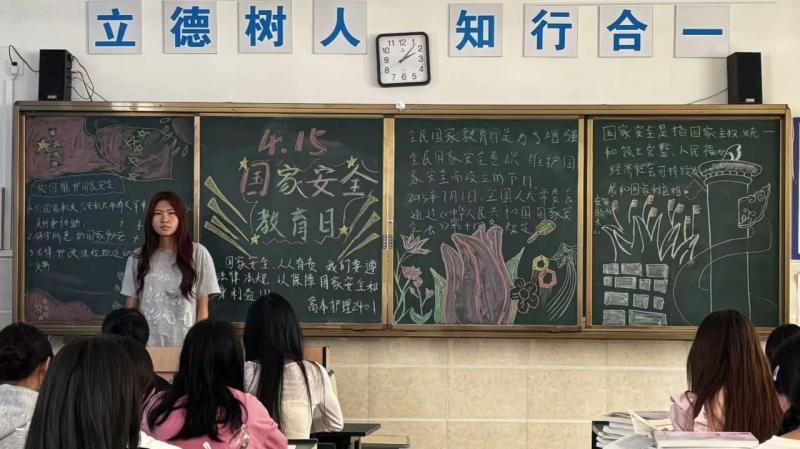 立德树人 知行合一
如何维护国家安全
4.15
国家安全
教育日
国家安全,人人有责 我们要遵
法律法规,以保障国家安全和
高本护理2401
全民国家教育日是为了增强
全民国家安全意识,维护国
家安全而设立的节日。
2015年7月1日,全国人大常委会
通过《中华人民共和国国家安
全法》第十四条规定
国家安全是指国家主权、统一
和领土完整、人民福祉
经济社会可持续发
展和国家利益相